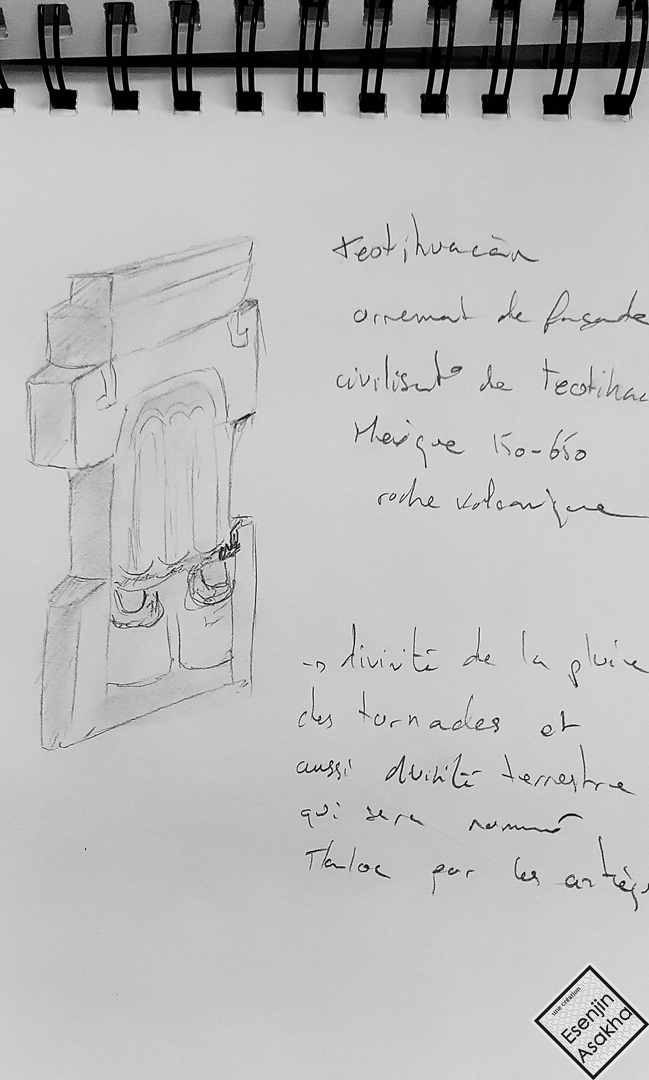 teotihuacàn
ornement de façade
civilisat° de teotihuac
Mexique 150-650
roche volcanique
→ divinité de la pluie
des tornades et
aussi divinité terrestre
qui sera nommé
Tlaloc par les aztèqu
une création
Esenjin
Asakha